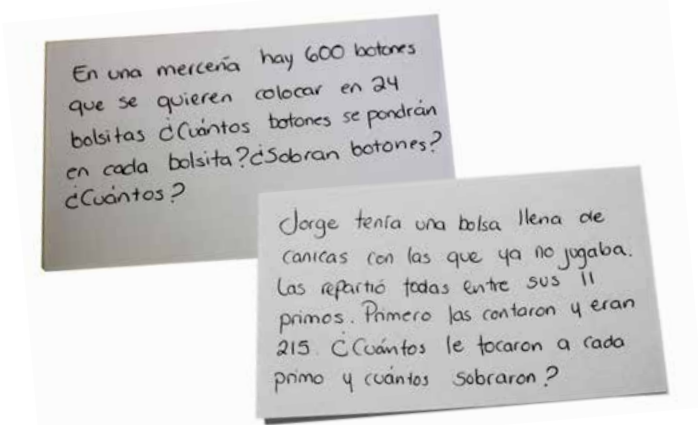 En una mercería hay 600 botones
que se quieren colocar en 24
bolsitas ¿Cuántos botones se pondrán
en cada bolsita? ¿Sobran botones?
¿Cuántos?
Jorge tenía una bolsa llena de
canicas con las que ya no jugaba.
Las repartió todas entre sus 11
primos. Primero las contaron y eran
215. ¿Cuántos le tocaron a cada
primo y cuántos sobraron?